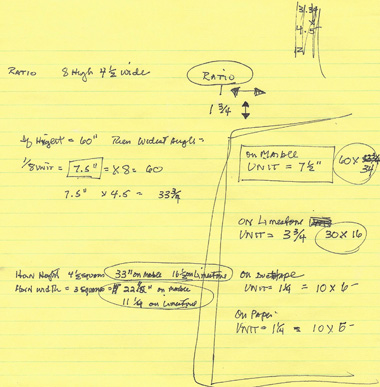 3 3/4
4.5
RATIO 8 High 4 1/2 wide
RATIO
1 3/4
If Height = 60" Then Widest Angle =
1/8 UNIT = 7.5" = x 8 = 60
7.5" x 4.5 = 33 3/4
on Marble
UNIT = 7 1/2"
60 x 34
ON Limestone
UNIT = 3 3/4
30 x 16
Horn Height 4 1/2 squares 33" on marble 16 1/2 on Limestone
Horn width = 3 squares = 22 1/2" on marble
11 1/4 on limestone
UNIT = 1 1/4 = 10 x 5
on Paper
UNIT = 1 1/4 = 10 x 5